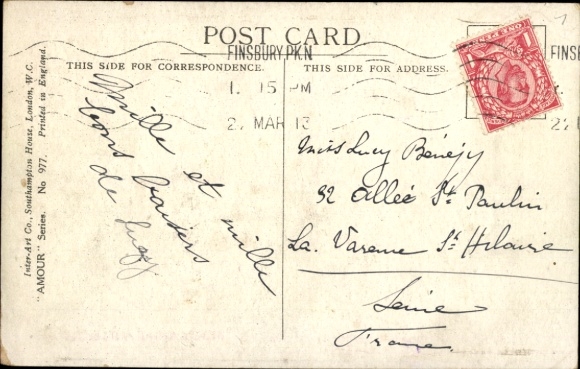 POST CARD
FINSBURY.PK.N
FINSB
THIS SIDE FOR CORRESPONDENCE.
THIS SIDE FOR ADDRESS.
1. 15 PM
2. MAR 13
Mille et mille
bons baisers
de
Miss Lucy
32 Allée St. Paulin
La. Varenne St. Hilaire
Seine
France.
Inter-Art Co., Southampton House, London, W.C.
"AMOUR" Series. No 977. Printed in England.